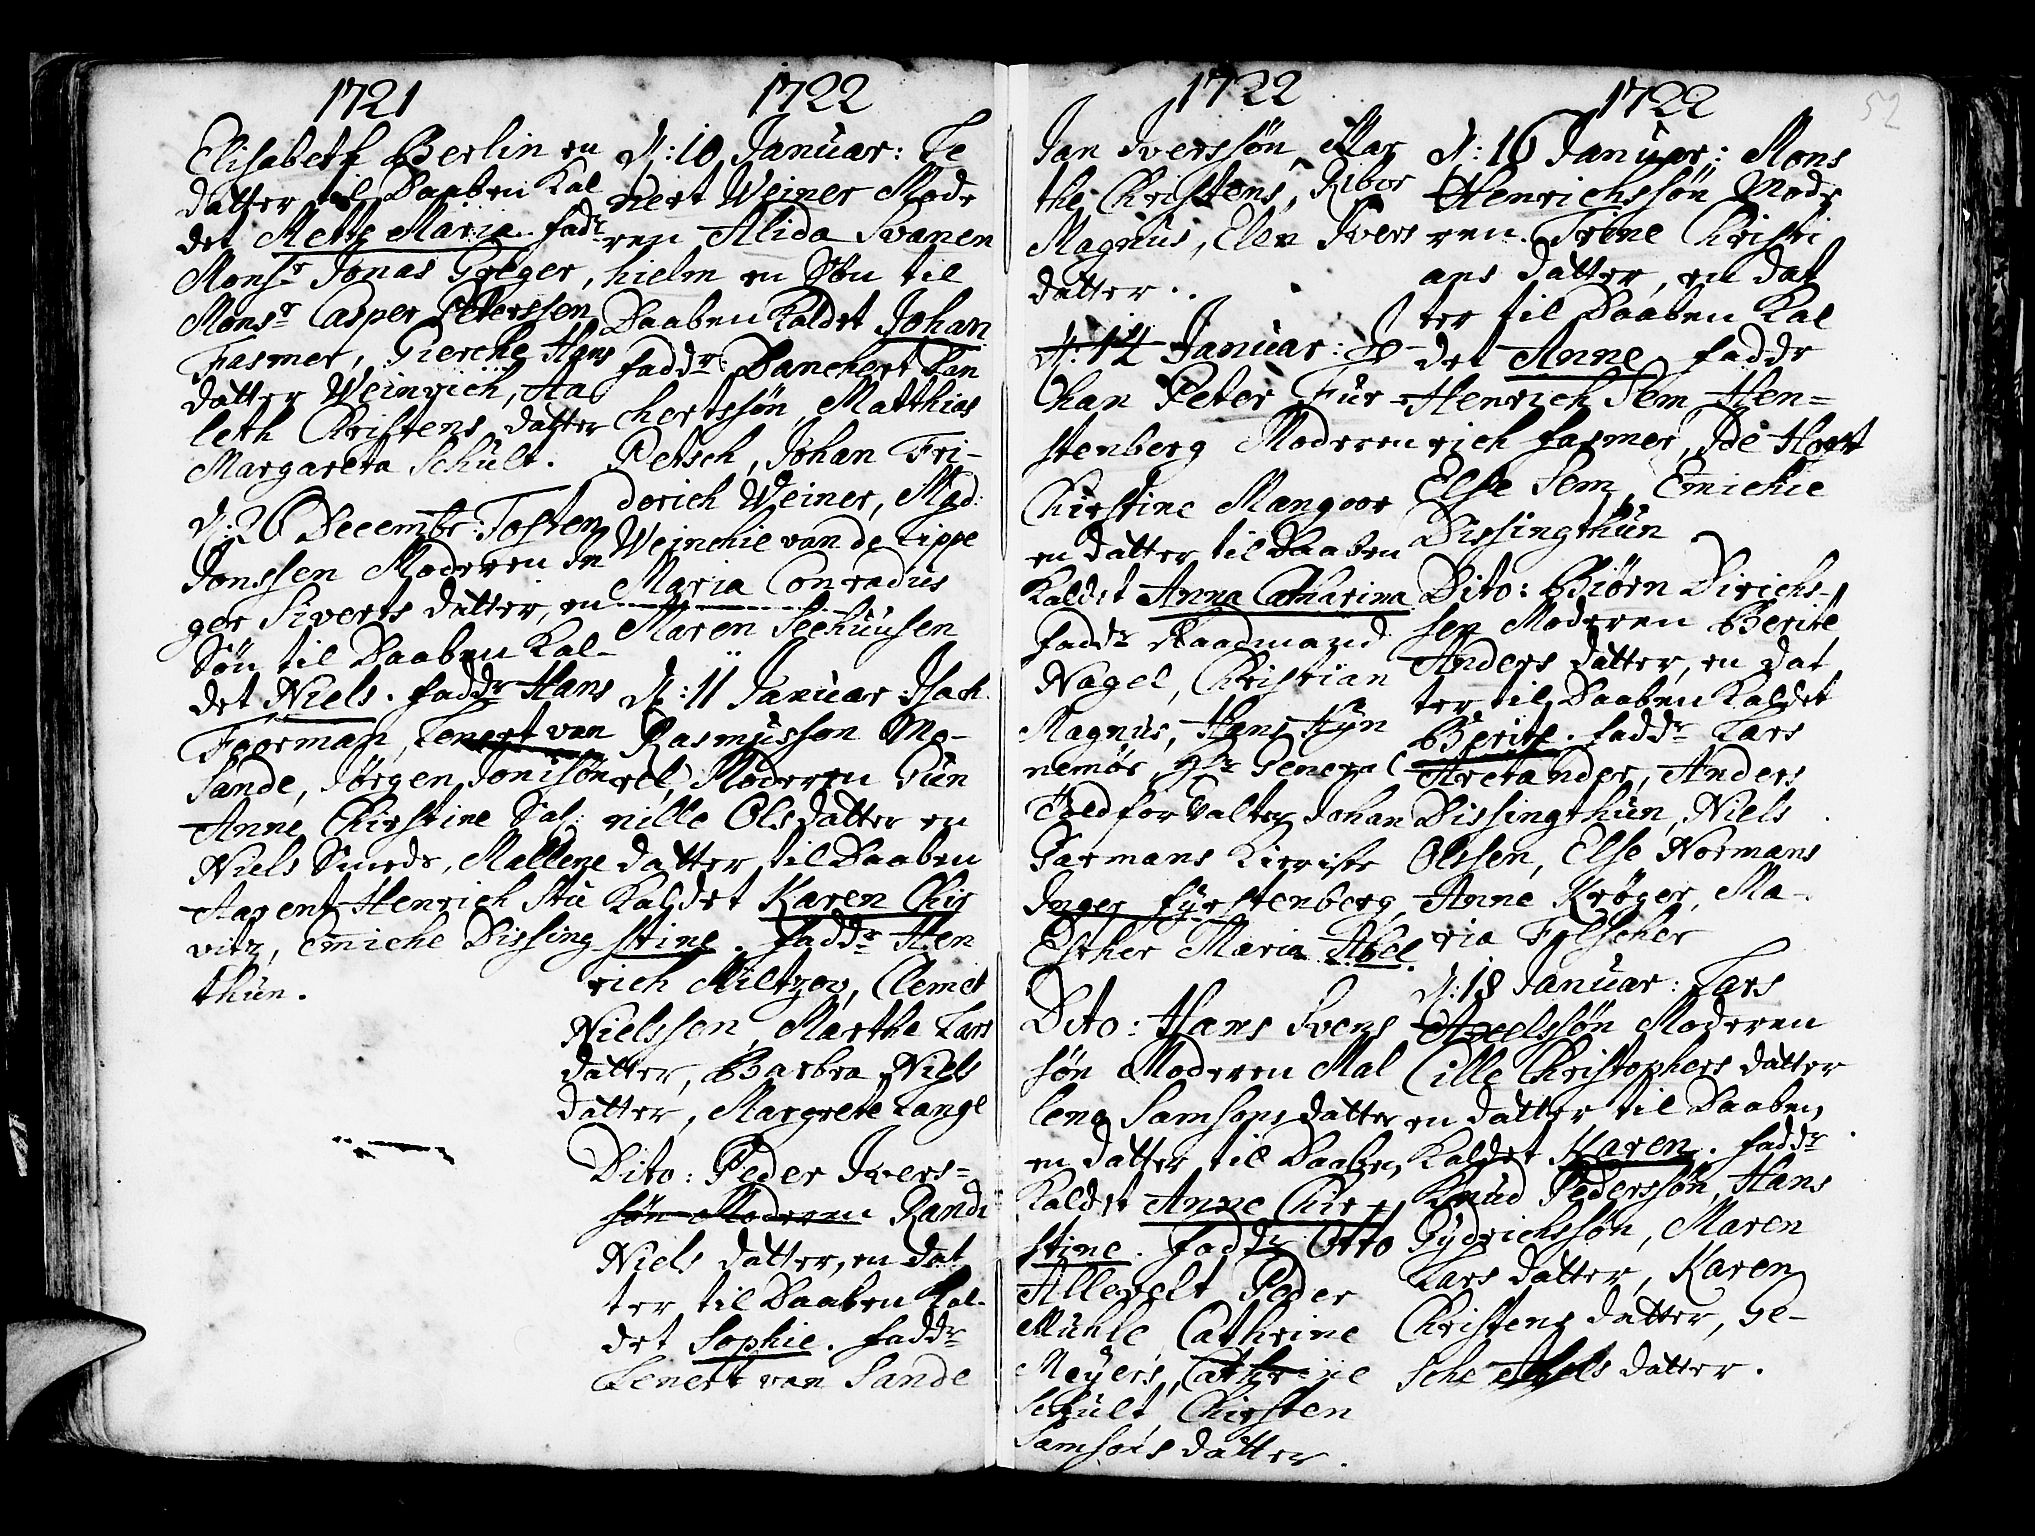 1721
Elisabeth Berlin en
datter til Daaben Kal
det Mette Maria. fadr
Monsr Jonas Greger,
Monsr Casper Peterssen
Fasmer, Gierche Hans
datter Weinrich, Aa
leth Christens datter
Margareta Schult.
d: 26 Decembr: Tosten
Jonssen Moderen In
ger Siverts datter, en
Søn til Daaben Kal-
det Niels. faddr Hans
Foorman, Lenert van
Sande, Jørgen Jonisøn
Anne Chirstine Sal:
Niels Smeds, Mallene
Aarent Henrich Stu
vitz, Emiche Dissing
thun.
1722
d: 10 Januar: Le
nert Weiner Mode
ren Alida Svanen
hielm en Søn til
Daaben Kaldet Johan
faddr Danchert Dan
chertssøn, Matthias
Petsch, Johan Fri-
derich Weiner, Mad:
Weinchie van de Lippe
Maria Conradus
Maren Seehuusen
d: 11 Januar Isach
Rasmusson Mo-
rel, Moderen Gun
nille Olsdatter en
datter til Daaben
Kaldet Karen Chir
stine. faddr Hen
rich Miltzov, Clemet
Nielssen, Marthe Lars
datter, Barbra Niels
datter, Margrete Lange
Dito: Peder Ivers=
søn Moderen Randi
Niels datter, en dat
ter til Daaben Kal-
det Sophie. faddr
Lenert van Sande
1722
Jan Iverssøn, Mar
the Christens, Ribor
Magnus, Elen Ivers
datter.
d: 14 Januar: Jo-
han Peter Für-
stenberg Moderen
Chirstine Mangor
en datter til Daaben
Kaldet Anna Catharina
faddr Raadmand
Nagel, Christian
Magnus, Hans Hyn
nemør, Hr General
Feldforvalter Johan
Garmans Kieriste
Inger Fyrstenberg,
Esther Maria Abel.
Dito: Hans Svens
søn Moderen Mal
lena Samsons datter
en datter til Daaben
Kaldet Anne Chir-
stine. faddr Otto
Allevelt Peder
Muhle, Cathrine
Meyers, Cathrine
Schult, Chirsten
Samsons datter.
1722
52
d: 16 Januar: Mons
Henrichssøn Mode
ren Trine Christi
ans datter, en dat
ter til Daaben Kal
det Anne faddr
Henrich Sem Hen=
rich fasmer, Ide Hort
Else Sem, Emichie
Dissingthun
Dito: Biørn Dirichs-
sen Moderen Berite
Anders datter, en dat
ter til Daaben Kaldet
Berite. faddr Lars
Arctander, Anders
Dissingthun, Niels
Olssen, Else Normans
Anne Krøger, Ma-
ria Fylscher
d: 18 Januar: Lars
Axelssøn Moderen
Cille Christophers datter
en datter til Daaben
Kaldet Karen. faddr
Knud Pederssøn, Hans
Gydrichssøn, Maren
Lars datter, Karen
Christens datter, Ge-
sche Axels datter.